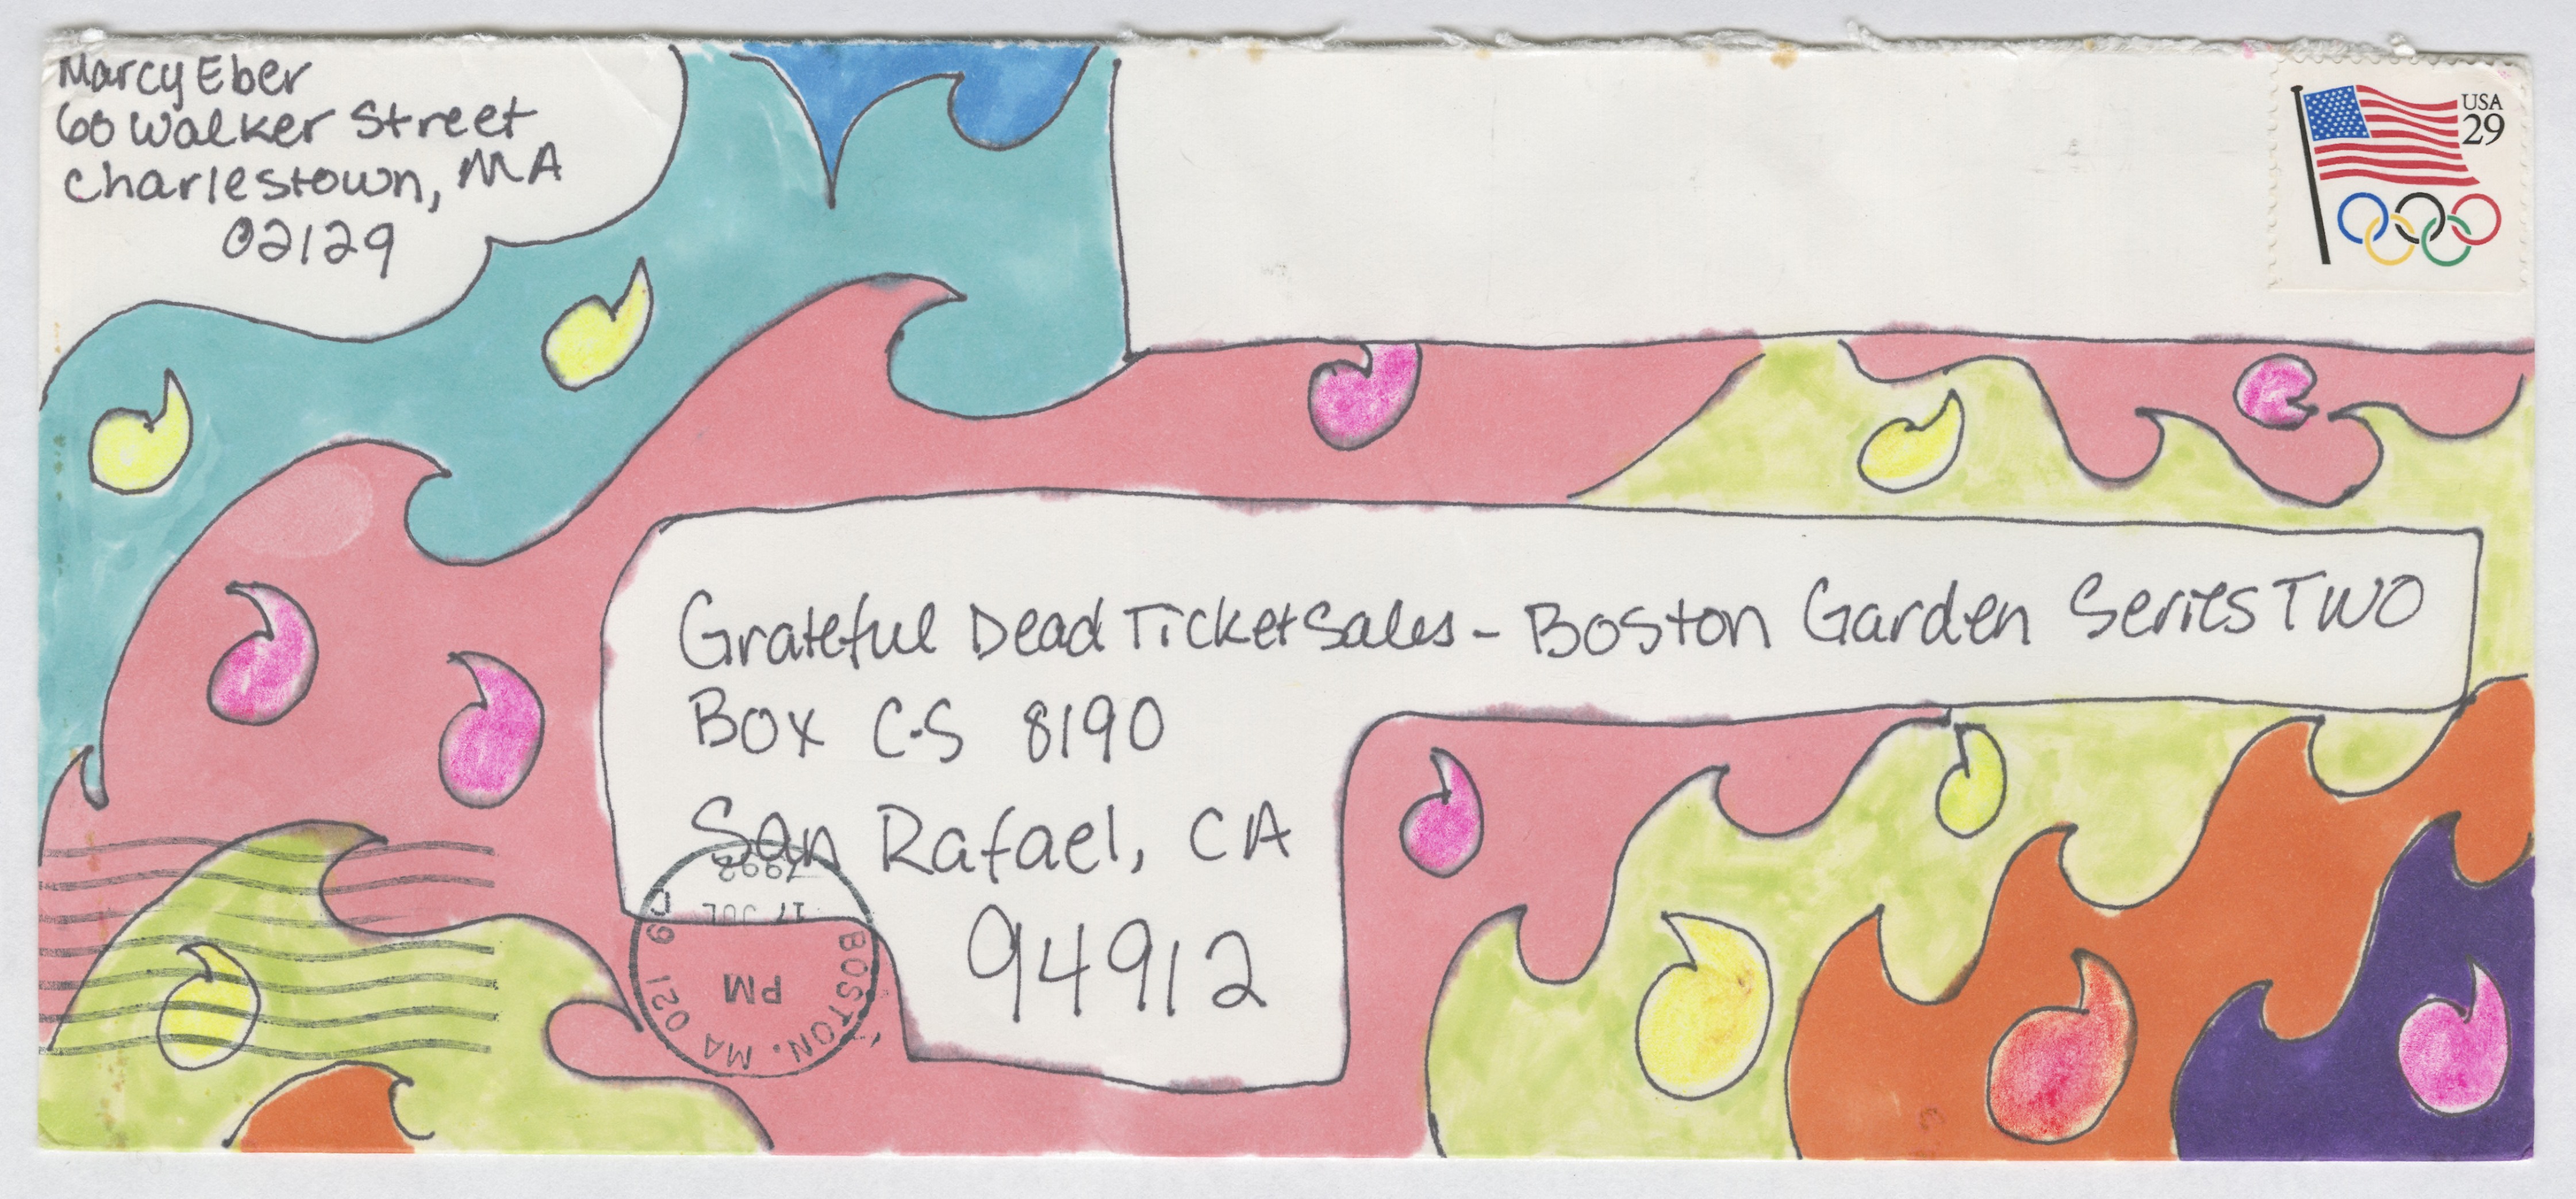 Marcy Eber
60 Walker Street
Charlestown, MA
02129
USA
29
Grateful Dead Ticket Sales - Boston Garden Series Two
Box C.S 8190
San Rafael, CA
94912
BOSTON, MA 021
PM
17 JUL
1992